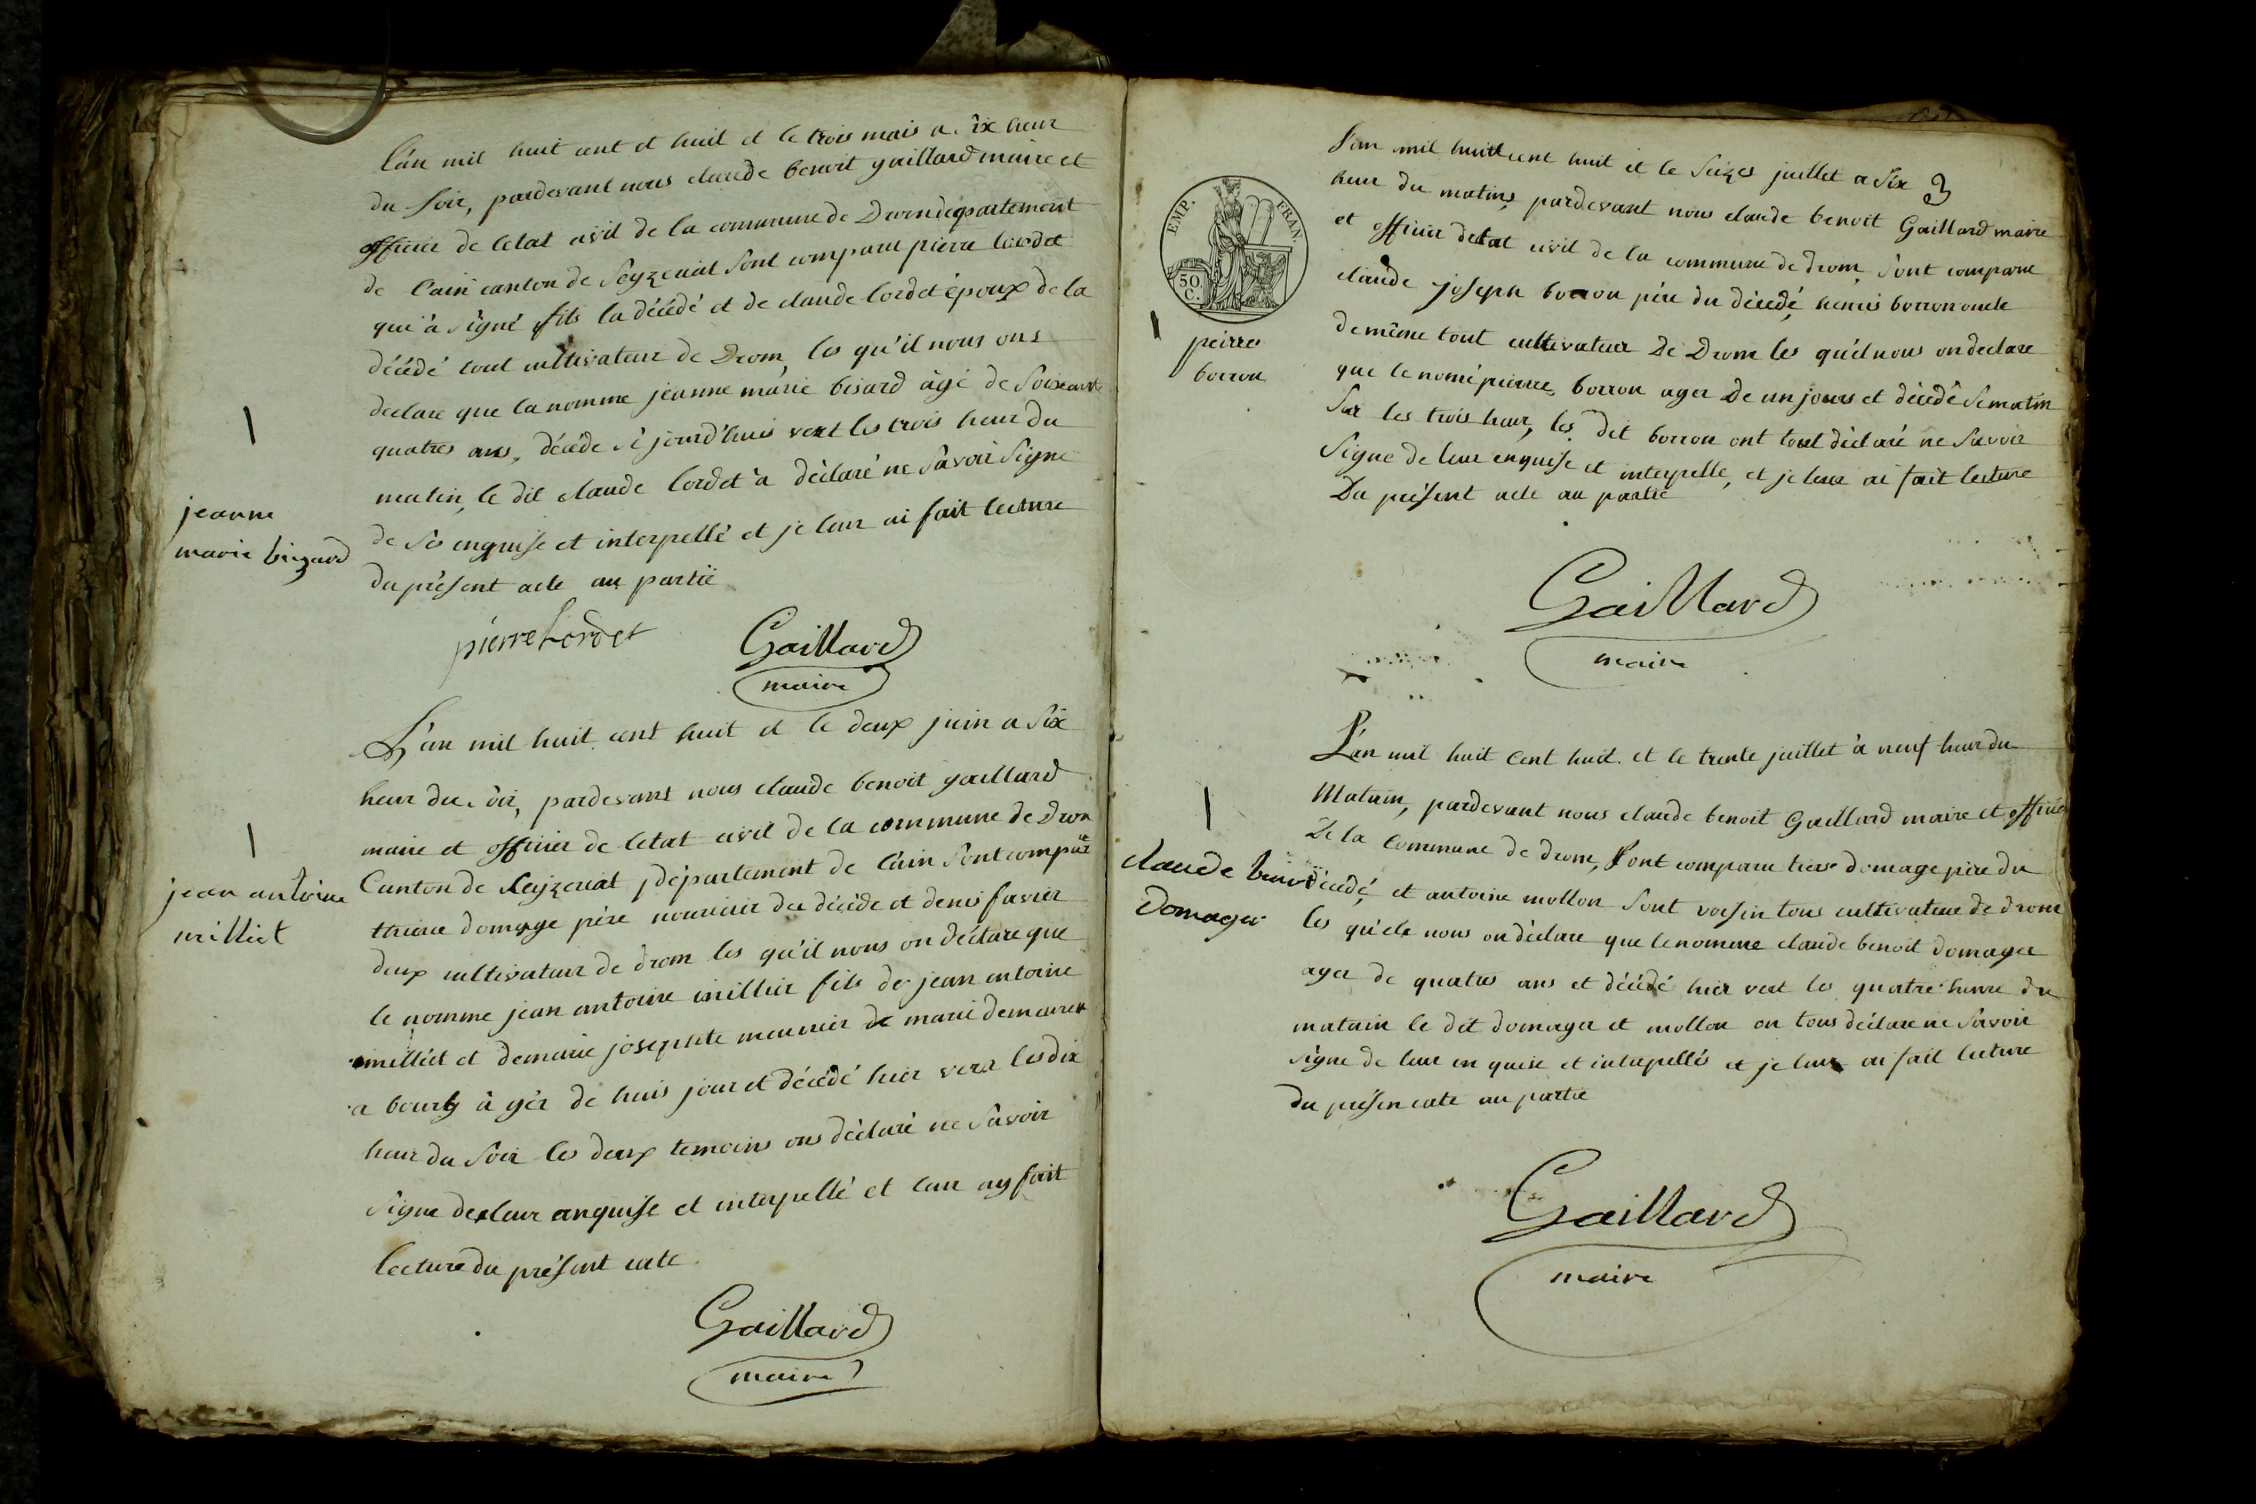 l'an mil huit cent et huit et le trois mais a six heur
du soir, pardevant nous claude benoit gaillard maire et
officier de letat civil de la commune de Drom departement
de l'ain canton de Seyzeriat sont comparu pierre lordet
qui à signé fils la décédé et de claude lordet époux de la
décédé tout cultivateur de Drom, les qu'il nous ons
declare que la nomme jeanne marie bisard âgé de soixante
quatres ans, décéde sé jourd'huis vert les trois heur du
matin, le dit claude lordet à déclaré ne sávoir signe
de ses enquise et interpellé et je leur ai fait lecture
du présent acte au partië
jeanne
marie bizard
pierre Lordet
Gaillard
maire
L'an mil huit cent huit et le deux juin a six
heur du soir, pardevant nous claude benoit gaillard
maire et officier de letat civil de la commune de Drom
Canton de Seyzeriat, département de l'ain sont comparu
domage père nouricier du décéde et denis favier
deux cultivateur de drom les qu'il nous on déclare que
le nomme jean antoine millier fils de jean antoine
milliet et de marie josephte meunier de marie demeurer
a bourg à gér de huis jour et décédé hier vers les dix
heur du soir les deux temoins ons déclaré ne savoir
signe de leur enquise et interpellé et leur ay fait
lecture du présent acte
jean antoine
milliet
Gaillard
maire
3
l'an mil huit cent huit et le seizes juillet a six
heur du matins pardevant nous claude benoit Gaillard maire
et officier detat civil de la commune de drom sont comparu
claude joseph borron pére du décédé, borron oncle
de même tout cultivateur De Drom les qu'il nous on declare
que le nomé pierre borron ager De un jours et décédé se matin
sur les trois heur, les dit borron ont tout déclaré ne savoir
signe de leur enquise et interpelle, et je leur ai fait lecture
Du présent acte au partie
EMP. FRAN.
50 C.
peirre
borron
Gaillard
maire
L'an mil huit cent huit et le trente juillet à neuf heur du
Matain, pardevant nous claude benoit Gaillard maire et officier
De la Commune de drom, sont comparu domage pére du
décédé, et antoine mollon sont voisin tous cultivateur de drom
les qu'ele nous on déclare que le nomme claude benoit domager
ager de quatres ans et décédé hier vert les quatre heure du
matain le dit domager et mollon on tous déclare ne savoir
signe de leur en queise et interpellés et je leur ai fait lecture
du présen acte au partie
claude benoit
Domager
Gaillard
maire